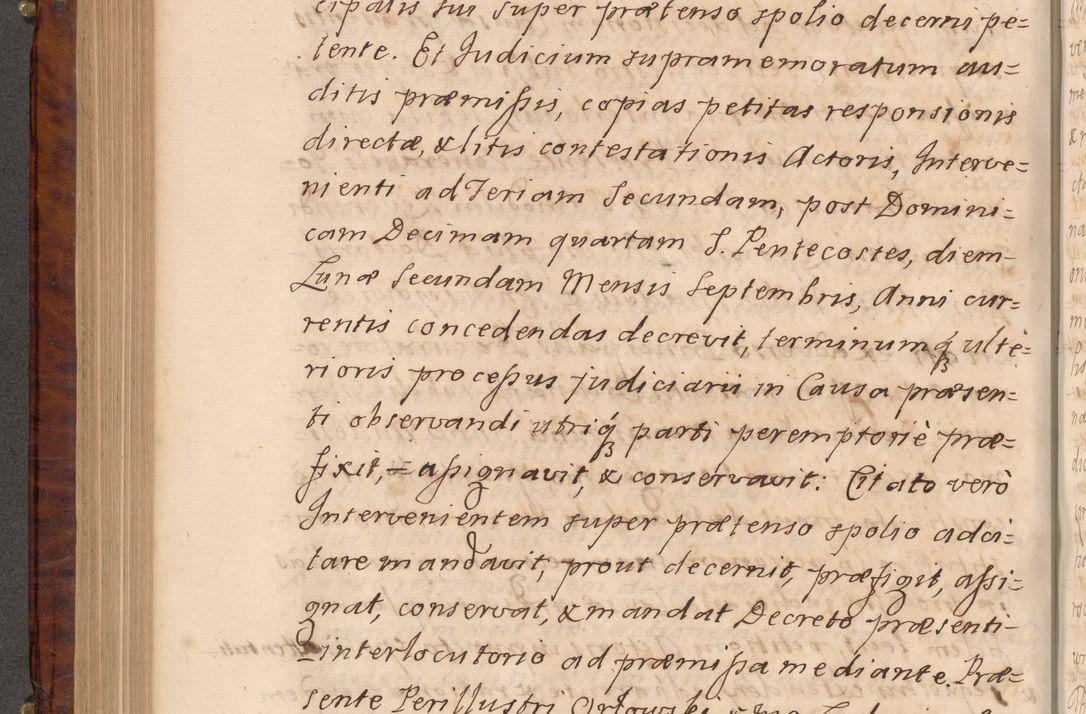 cipalis sui super prætenso spolio decerni pe=
tente. Et Judicium supramemoratum au=
ditis præmissis, copias petitas responsionis
directæ, & litis contestationis Actoris, Interve=
nienti ad Feriam Secundam, post Domini=
cam Decimam quartam S. Pentecostes, diem
Lunæ Secundam Mensis Septembris, Anni cur=
rentis concedendas decrevit, terminumq́ꝫ ulte=
rioris processus judiciarii in Causa præsen=
ti observandi utriq́ꝫ parti peremptoriè præ=
fixit, = assignavit, & conservavit: Citato verò
Intervenientem super prætenso spolio adci=
tare mandavit, prout decernit, præfigit, assi=
gnat, conservat, & mandat Decreto præsenti
= interlocutorio ad præmissa mediante. Præ=
sente Perillustri Orłowski